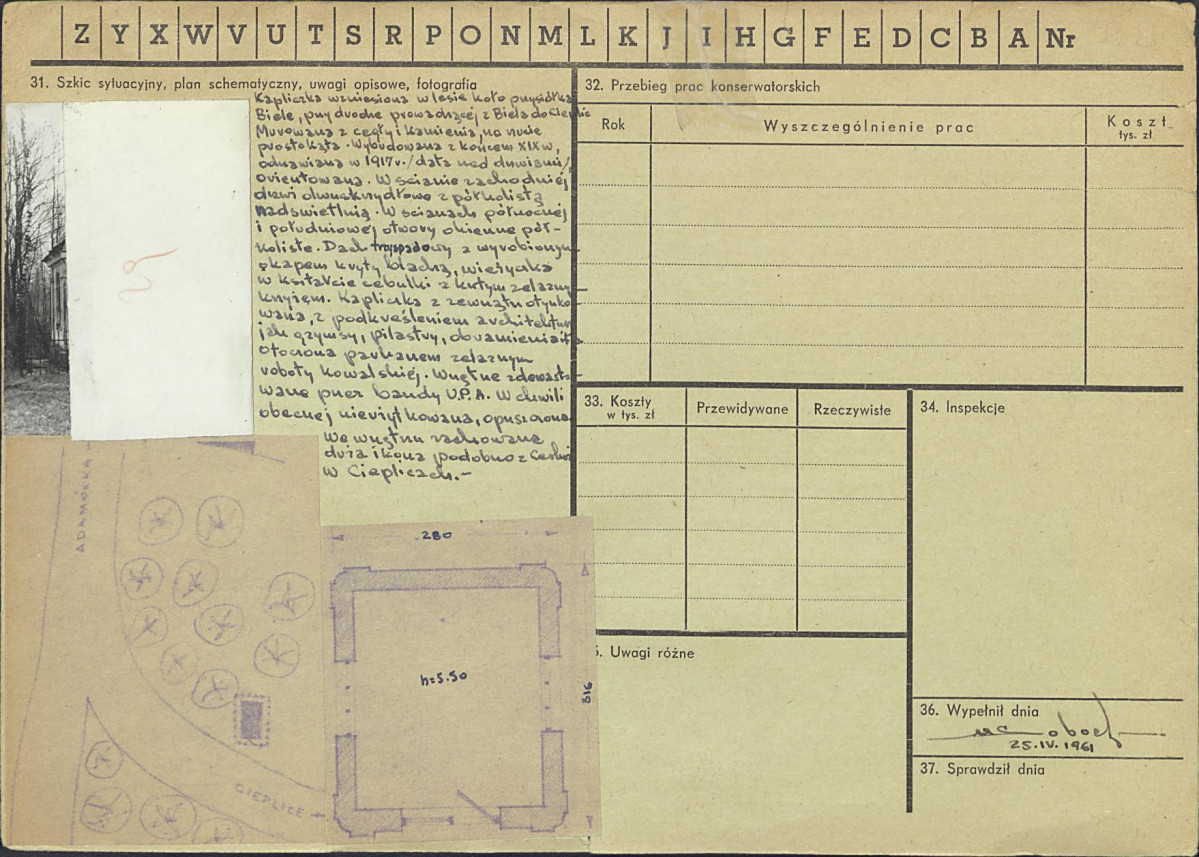 Z Y X W V U T S R P O N M L K J I H G F E D C B A Nr
31. Szkic sytuacyjny, plan schematyczny, uwagi opisowe, fotografia
Kapliczka wzniesiona w lesie koło przysiółka
Biele, przy drodze prowadzącej z Biela do Cieplic
Murowana z cegły i kamienia, na rzucie
prostokąta. Wybudowana z końcem XIX w,
odnawiana w 1917 r. /data nad drzwiami/,
orientowana. W ścianie zachodniej
drzwi dwuskrzydłowe z półkolistą
nadświetlnią. W ścianach północnej
i południowej otwory okienne pół-
koliste. Dach trzyspadowy z wyrobionym
okapem kryty blachą, wieżyczka
w kształcie cebulki z kutym żelaznym
krzyżem. Kapliczka z zewnątrz otynko
wana, z podkreśleniem architektury
jak gzymsy, pilastry, obramienia itp.
Otoczona parkanem żelaznym
roboty kowalskiej. Wnętrze zdewasto-
wane przez bandy U.P.A. W chwili
obecnej nieużytkowana, opuszczona.
We wnętrzu zachowana
duża ikona podobno z Cerkwi
w Cieplicach.-
ADAMÓWKA
CIEPLICE
280
316
h=5.50
32. Przebieg prac konserwatorskich
Rok
Wyszczególnienie prac
Koszt
tys. zł
33. Koszty
w tys. zł
Przewidywane
Rzeczywiste
34. Inspekcje
5. Uwagi różne
36. Wypełnił dnia
25.IV.1961
37. Sprawdził dnia